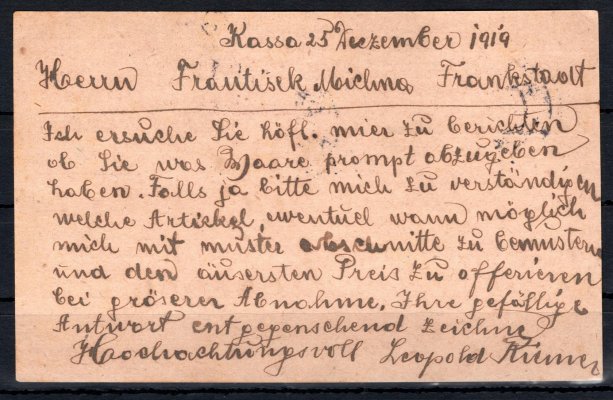 Kassa 25 Dezember 1919
Herrn František Michna Frankstadt
Ich ersuche Sie höfl. mier zu berichten
ob Sie was Waare prompt abzugeben
haben. Falls ja bitte mich zu verständigen
welche Artickel, eventuel wann möglich
mich mit muster abschnitte zu bemustern
und den äusersten Preis zu offerieren
bei gröserer Abnahme. Ihre gefällige
Antwort entgegensehend zeichne
Hochachtungsvoll Leopold